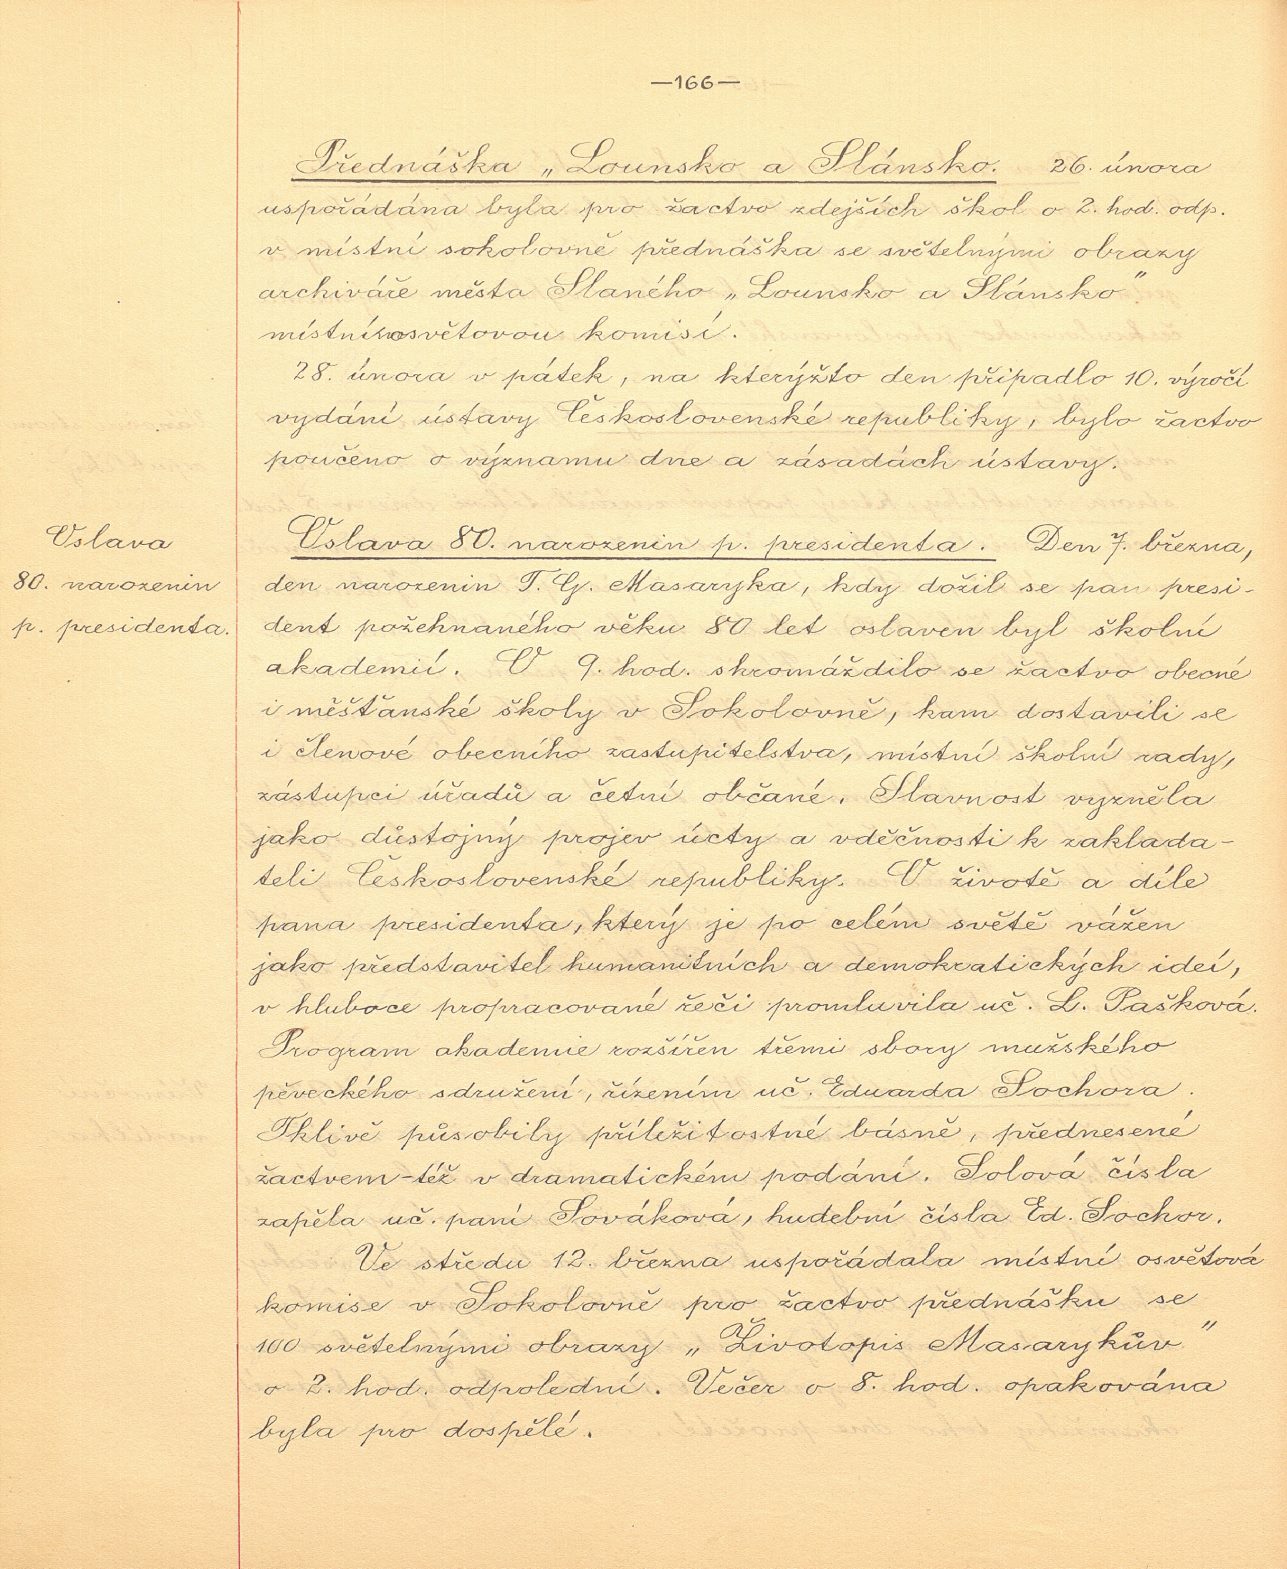 —166—
Přednáška „Lounsko a Slánsko. 26. února
uspořádána byla pro žactvo zdejších škol o 2. hod. odp.
v místní sokolovně přednáška se světelnými obrazy
archiváře města Slaného „Lounsko a Slánsko"
místní osvětovou komisí.
28. února v pátek, na kterýžto den připadlo 10. výročí
vydání ústavy Československé republiky, bylo žactvo
poučeno o významu dne a zásadách ústavy.
Oslava
80. narozenin
p. presidenta.
Oslava 80. narozenin p. presidenta. Den 7. března,
den narozenin T. G. Masaryka, kdy dožil se pan presi-
dent požehnaného věku 80 let oslaven byl školní
akademií. V 9. hod. shromáždilo se žactvo obecné
i měšťanské školy v Sokolovně, kam dostavili se
i členové obecního zastupitelstva, místní školní rady,
zástupci úřadů a četní občané. Slavnost vyzněla
jako důstojný projev úcty a vděčnosti k zaklada-
teli Československé republiky. O životě a díle
pana presidenta, který je po celém světě vážen
jako představitel humanitních a demokratických ideí,
v hluboce propracované řeči promluvila uč. L. Pašková.
Program akademie rozšířen třemi sbory mužského
pěveckého sdružení, řízením uč. Eduarda Sochora.
Tklivě působily příležitostné básně, přednesené
žactvem-též v dramatickém podání. Solová čísla
zapěla uč. paní Sováková, hudební čísla Ed. Sochor.
Ve středu 12. března uspořádala místní osvětová
komise v Sokolovně pro žactvo přednášku se
100 světelnými obrazy „Životopis Masarykův"
o 2. hod. odpolední. Večer o 8. hod. opakována
byla pro dospělé.